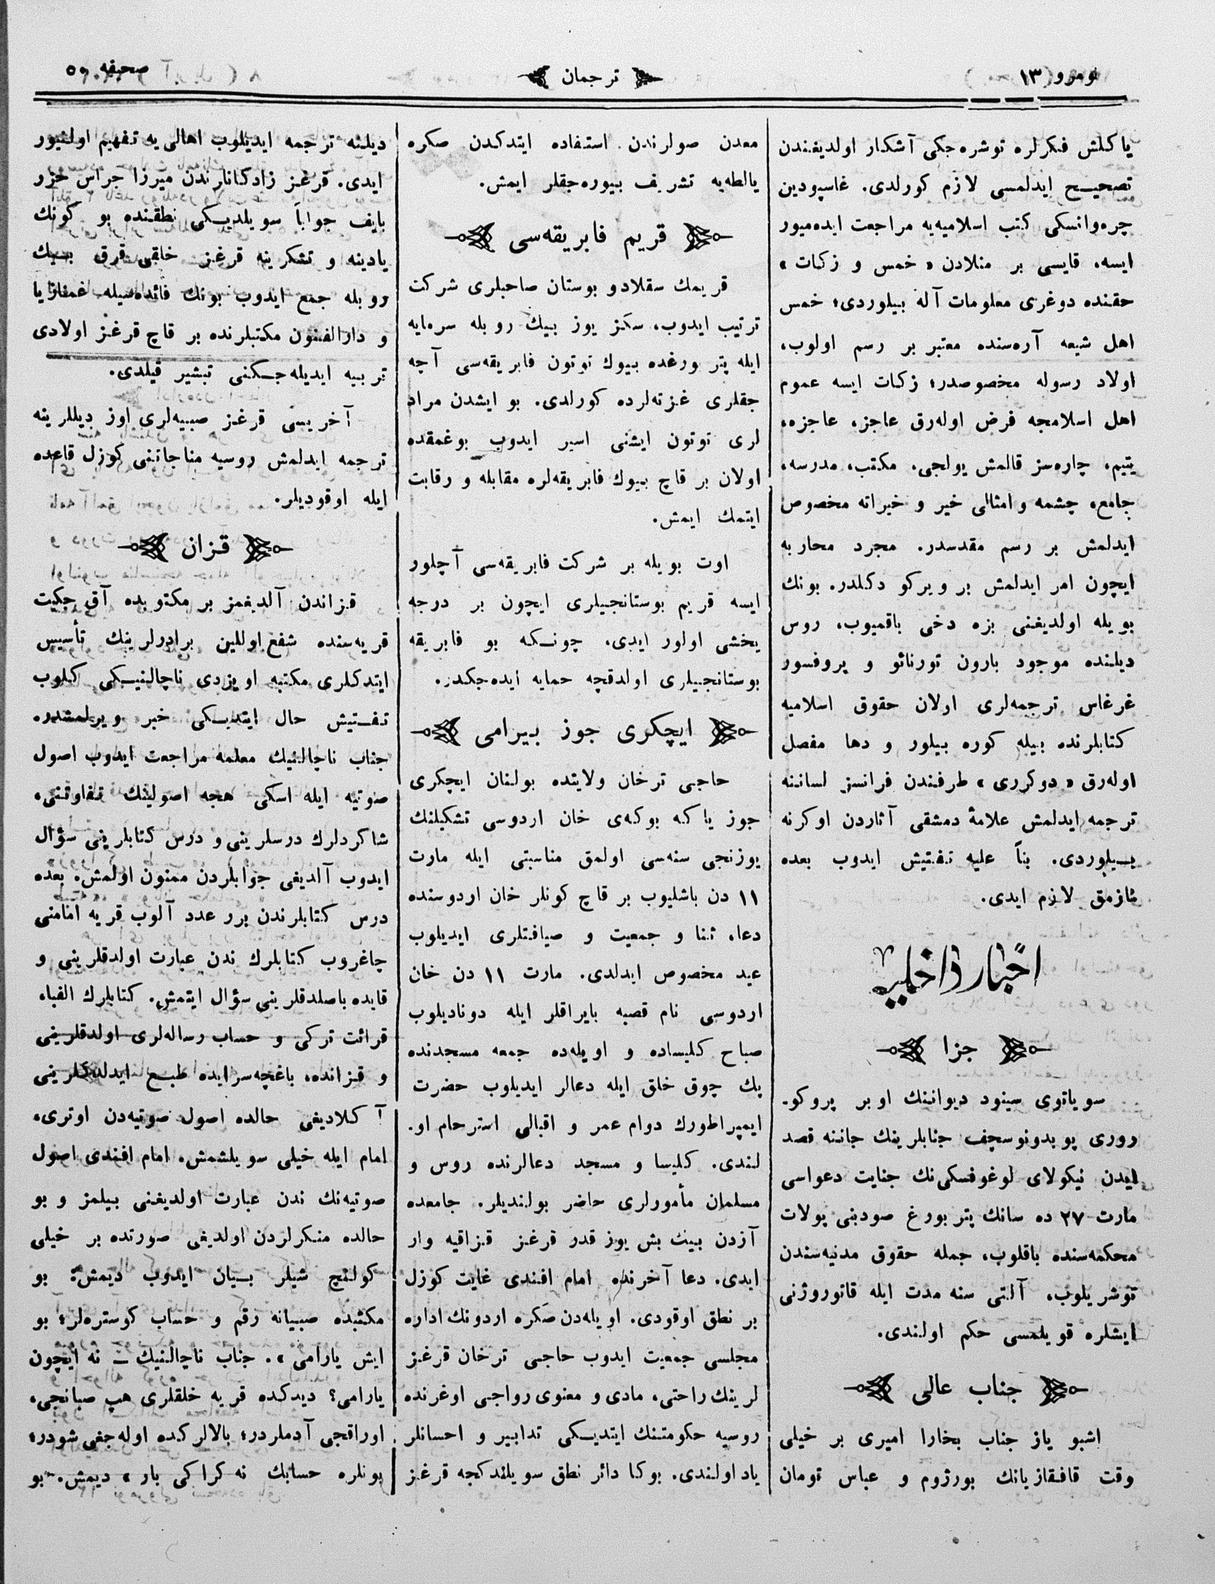 نومرو ١٣
ترجمان
صحیفه ٥٠
یاکلش فکرلره توشره‌جکی آشکار اولدیغندن
تصحیح ایدلمسی لازم کورلدی. غاسپودین
چره‌وانسکی کتب اسلامیه‌یه مراجعت ایده‌میور
ایسه، قایسی بر منلادن « خمس و زکات »
حقنده دوغری معلومات آله بیلوردی؛ خمس
اهل شیعه آره‌سنده معتبر بر رسم اولوب،
اولاد رسوله مخصوصدر؛ زکات ایسه عموم
اهل اسلامجه فرض اوله‌رق عاجز، عاجزه،
یتیم، چاره‌سز قالمش یولجی، مکتب، مدرسه،
جامع، چشمه و امثالی خیر و خیراته مخصوص
ایدلمش بر رسم مقدسدر. مجرد محاربه
ایچون امر ایدلمش بر ویرکو دکلدر. بونك
بویله اولدیغنی بزه دخی باقمیوب، روس
دیلنده موجود بارون تورنائو و پروفسور
غرغاس ترجمه‌لری اولان حقوق اسلامیه
کتابلرنده بیله کوره بیلور و دها مفصل
اوله‌رق « دوکرری » طرفندن فرانسز لساننه
ترجمه ایدلمش علامهٔ دمشقی آثاردن اوکرنه
بیلوردی. بناً علیه تفتیش ایدوب بعده
یازمق لازم ایدی.
اخبار داخلیه
جزا
سویاتوی سینود دیواننك اوبر پروکو-
روری پوبدونوسچف جنابلرینك جاننه قصد
ایدن نیکولای لوغوفسکی‌نك جنایت دعواسی
مارت ٢٧ ده سانك پتربورغ صودبنی پولات
محکمه‌سنده باقلوب، جمله حقوق مدنیه‌سندن
توشریلوب، آلتی سنه مدت ایله قاتوروژنی
ایشلره قویلمسی حکم اولندی.
جناب عالی
اشبو یاز جناب بخارا امیری بر خیلی
وقت قافقازیانك بورژوم و عباس تومان
معدن صولرندن استفاده ایتدکدن صکره
یالطه‌یه تشریف بیوره‌جقلر ایمش.
قریم فابریقه‌سی
قریمك سقلادو بوستان صاحبلری شرکت
ترتیب ایدوب، سکز یوز بیك روبله سرمایه
ایله پتربورغده بیوك توتون فابریقه‌سی آچه
جقلری غزته‌لرده کورلدی. بو ایشدن مراد
لری توتون ایشنی اسیر ایدوب بوغمقده
اولان بر قاچ بیوك فابریقه‌لره مقابله و رقابت
ایتمك ایمش.
اوت بویله بر شرکت فابریقه‌سی آچلور
ایسه قریم بوستانجیلری ایچون بر درجه
یخشی اولور ایدی، چونکه بو فابریقه
بوستانجیلری اولدقچه حمایه ایده‌جکدر.
ایچکری جوز بیرامی
حاجی ترخان ولایتده بولنان ایچکری
جوز یاکه بوکه‌ی خان اردوسی تشکیلنك
یوزنجی سنه‌سی اولمق مناسبتی ایله مارت
١١ دن باشلیوب بر قاچ کونلر خان اردوسنده
دعا، ثنا و جمعیت و ضیافتلری ایدیلوب
عید مخصوص ایدلدی. مارت ١١ دن خان
اردوسی نام قصبه بایراقلر ایله دونادیلوب
صباح کلیساده و اویله‌ده جمعه مسجدنده
پك چوق خلق ایله دعالر ایدیلوب حضرت
ایمپراطورك دوام عمر و اقبالی استرحام او.
لندی. کلیسا و مسجد دعالرنده روس و
مسلمان مأمورلری حاضر بولندیلر. جامعده
آزدن بیك بش یوز قدر قرغز قزاقیه وار
ایدی. دعا آخرنده امام افندی غایت کوزل
بر نطق اوقودی. اویله‌دن صکره اردونك اداره
مجلسی جمعیت ایدوب حاجی ترخان قرغز
لرینك راحتی، مادی و معنوی رواجی اوغرنده
روسیه حکومتنك ایتدیکی تدابیر و احسانلر
یاد اولندی. بوکا دائر نطق سویلندکجه قرغز
دیلنه ترجمه ایدیلوب اهالی‌یه تفهیم اولنیور
ایدی. قرغز زادکانارندن میرزا جراس خزر
بایف جواباً سویلدیکی نطقنده بو کونك
یادینه و تشکرینه قرغز خلقی قرق بیك
روبله جمع ایدوب بونك فائده‌سیله غمنازیا
و دارالفنون مکتبلرنده بر قاچ قرغز اولادی
تربیه ایدیله‌جکنی تبشیر قیلدی.
آخریسی قرغز صبیه‌لری اوز دیللرینه
ترجمه ایدلمش روسیه مناجاتنی کوزل قاعده
ایله اوقودیلر.
قزان
قزاندن آلدیغمز بر مکتوبده آق چکیت
قریه‌سنده شفیع‌اوللین برادرلرینك تأسیس
ایتدکلری مکتبه اویزدی ناچالنیکی کیلوب
تفتیش حال ایتدیکی خبر ویرلمشدر.
جناب ناچالنیك معلمه مراجعت ایدوب اصول
صوتیه ایله اسکی هجه اصولینك تفاوتنی،
شاکردلرك درسلرینی و درس کتابلرینی سؤال
ایدوب آلدیغی جوابلردن ممنون اولمش. بعده
درس کتابلرندن برر عدد آلوب قریه امامنی
چاغروب کتابلرك ندن عبارت اولدقلرینی و
قایده باصلدقلرینی سؤال ایتمش. کتابلرك الفباء
قرائت ترکی و حساب رساله‌لری اولدقلرینی
و قزانده، باغچه‌سرایده طبع ایدلدکلرینی
آکلادیغی حالده اصول صوتیه‌دن اوتری،
امام ایله خیلی سویلشمش. امام افندی اصول
صوتیه‌نك ندن عبارت اولدیغنی بیلمز و بو
حالده منکرلردن اولدیغی صورتده بر خیلی
کولنچ شیلر بیان ایدوب دیمش: بو
مکتبده صبیانه رقم و حساب کوستره‌لر؛ بو
ایش یارامی ». جناب ناچالنیك — نه ایچون
یارامی؟ دیدکده قریه خلقلری هپ صبانجی،
اوراقجی آدملردر؛ بالالرکده اوله‌جغی شودر؛
بونلره حسابك نه کراکی بار » دیمش. بو